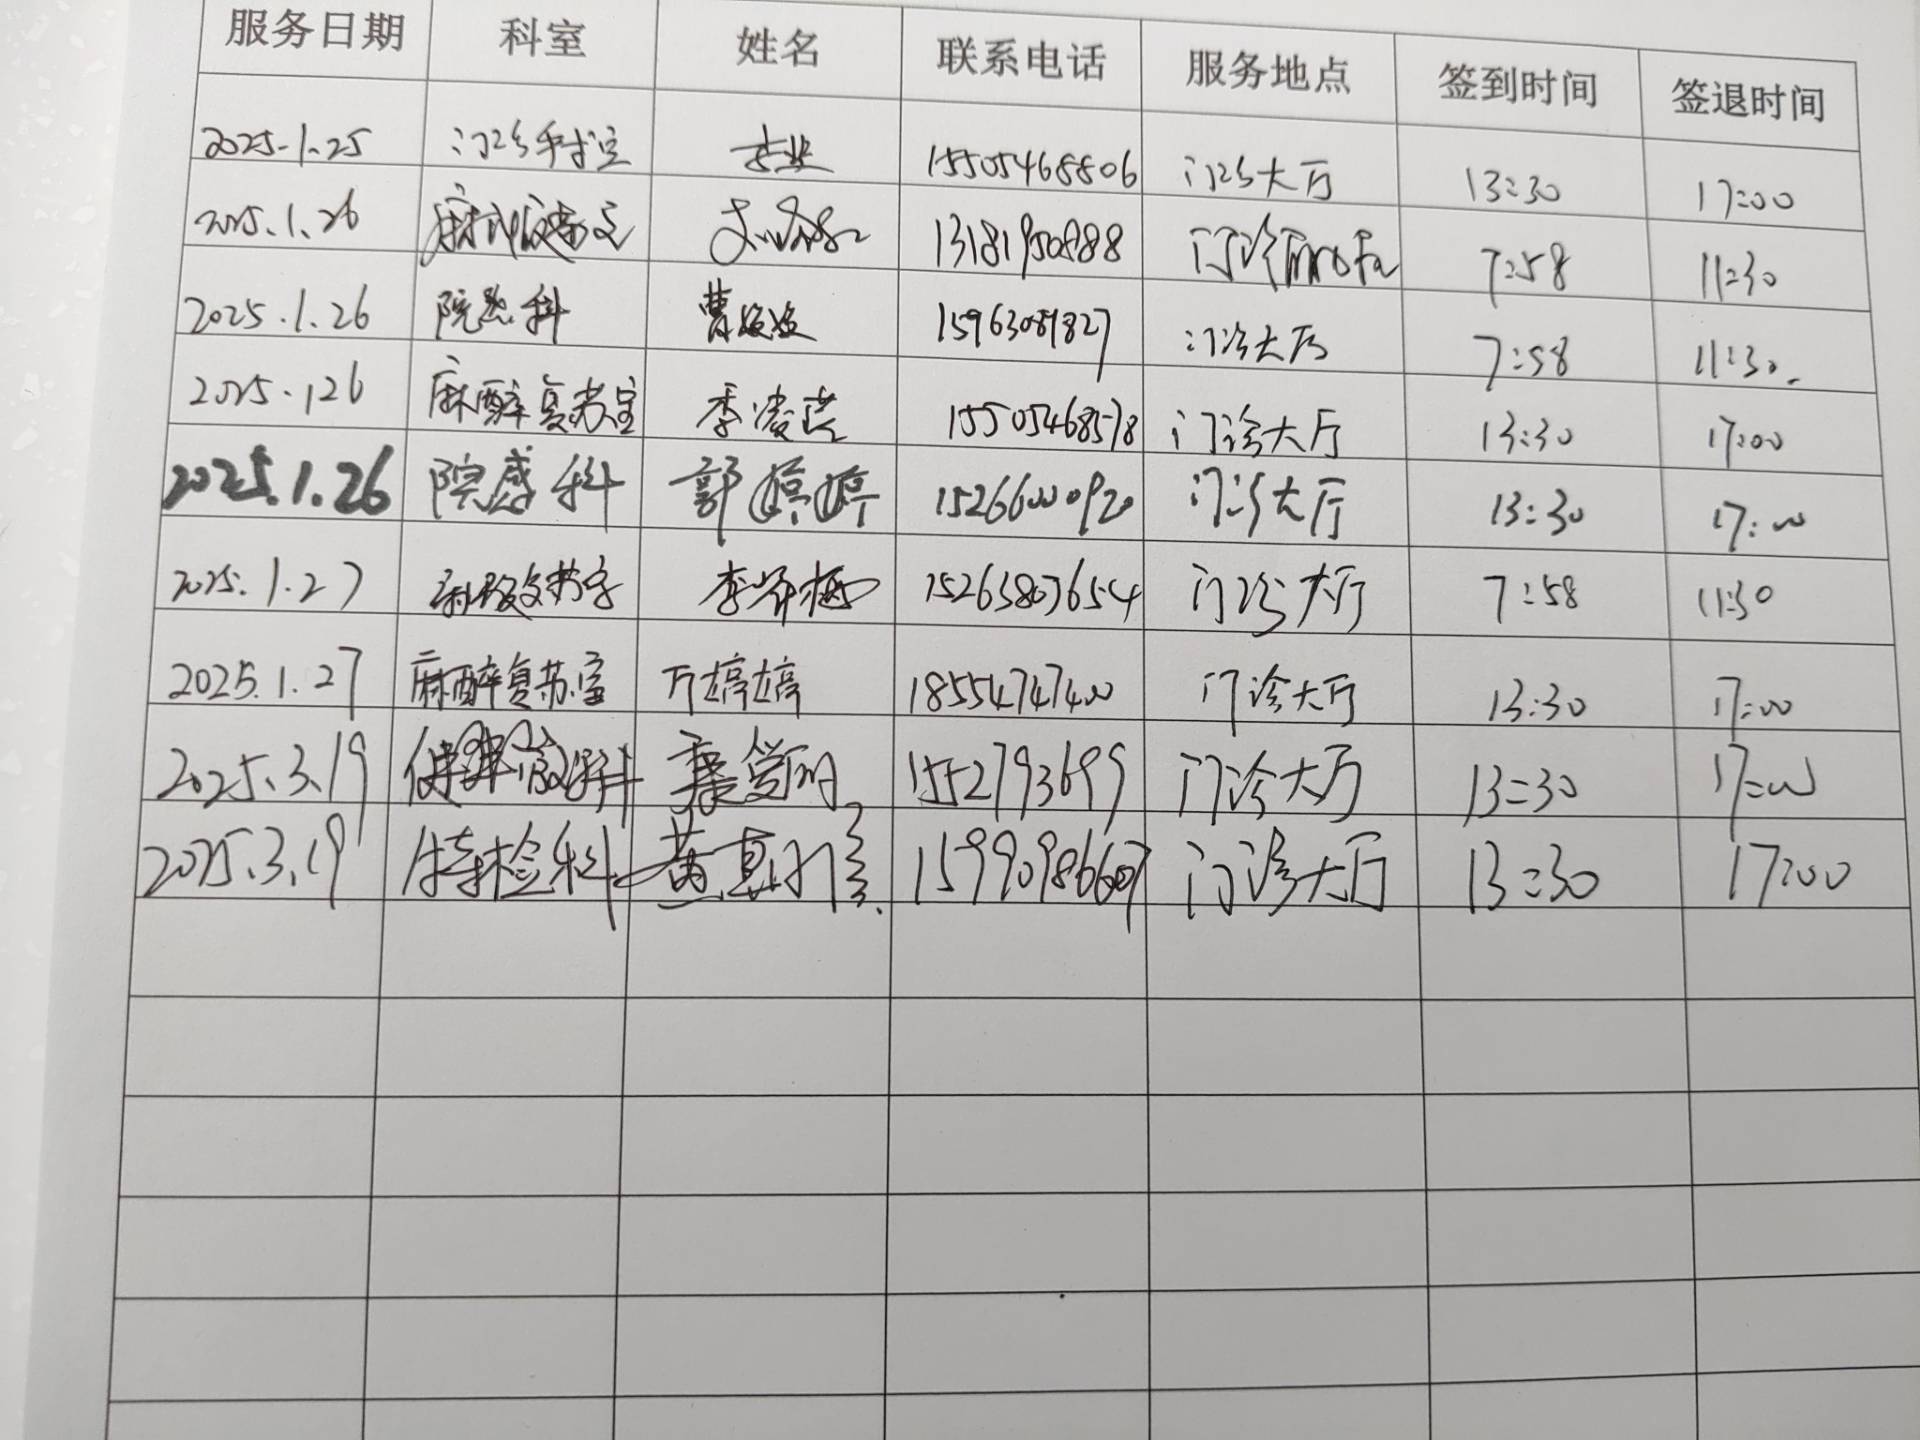 服务日期 科室 姓名 联系电话 服务地点 签到时间 签退时间
2025.1.25 门诊手术室 15505468806 门诊大厅 13:30 17:00
2025.1.26 13181950888 门诊 7:58 11:30
2025.1.26 院感科 曹 15963089827 门诊大厅 7:58 11:30
2025.126 麻醉复苏室 李凌芸 15505468578 门诊大厅 13:30 17:00
2025.1.26 院感科 郭婷婷 15266000920 门诊大厅 13:30 17:00
2025.1.27 李 15263807654 门诊大厅 7:58 11:30
2025.1.27 麻醉复苏室 万婷婷 18554747400 门诊大厅 13:30 17:00
2025.3.19 1552793699 门诊大厅 13:30 17:00
2025.3.19 特检科 黄 门诊大厅 13:30 17:00